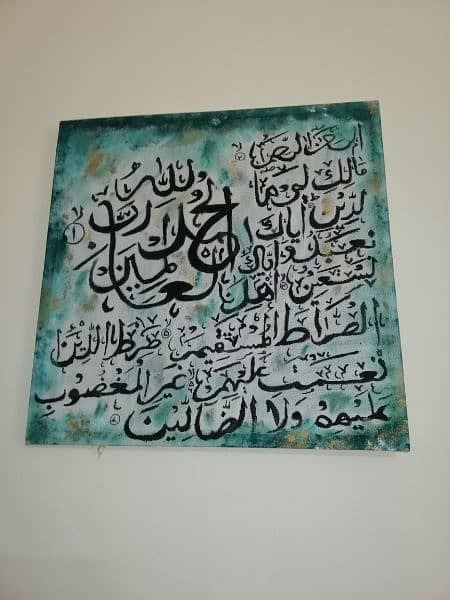 الحمد لله رب العالمين
الرحمن الرحيم
مالك يوم ا
لدين إياك
نعبد وإياك
نستعين اهدنا
الصراط المستقيم صراط الذين
أنعمت عليهم غير المغضوب
عليهم ولا الضالين